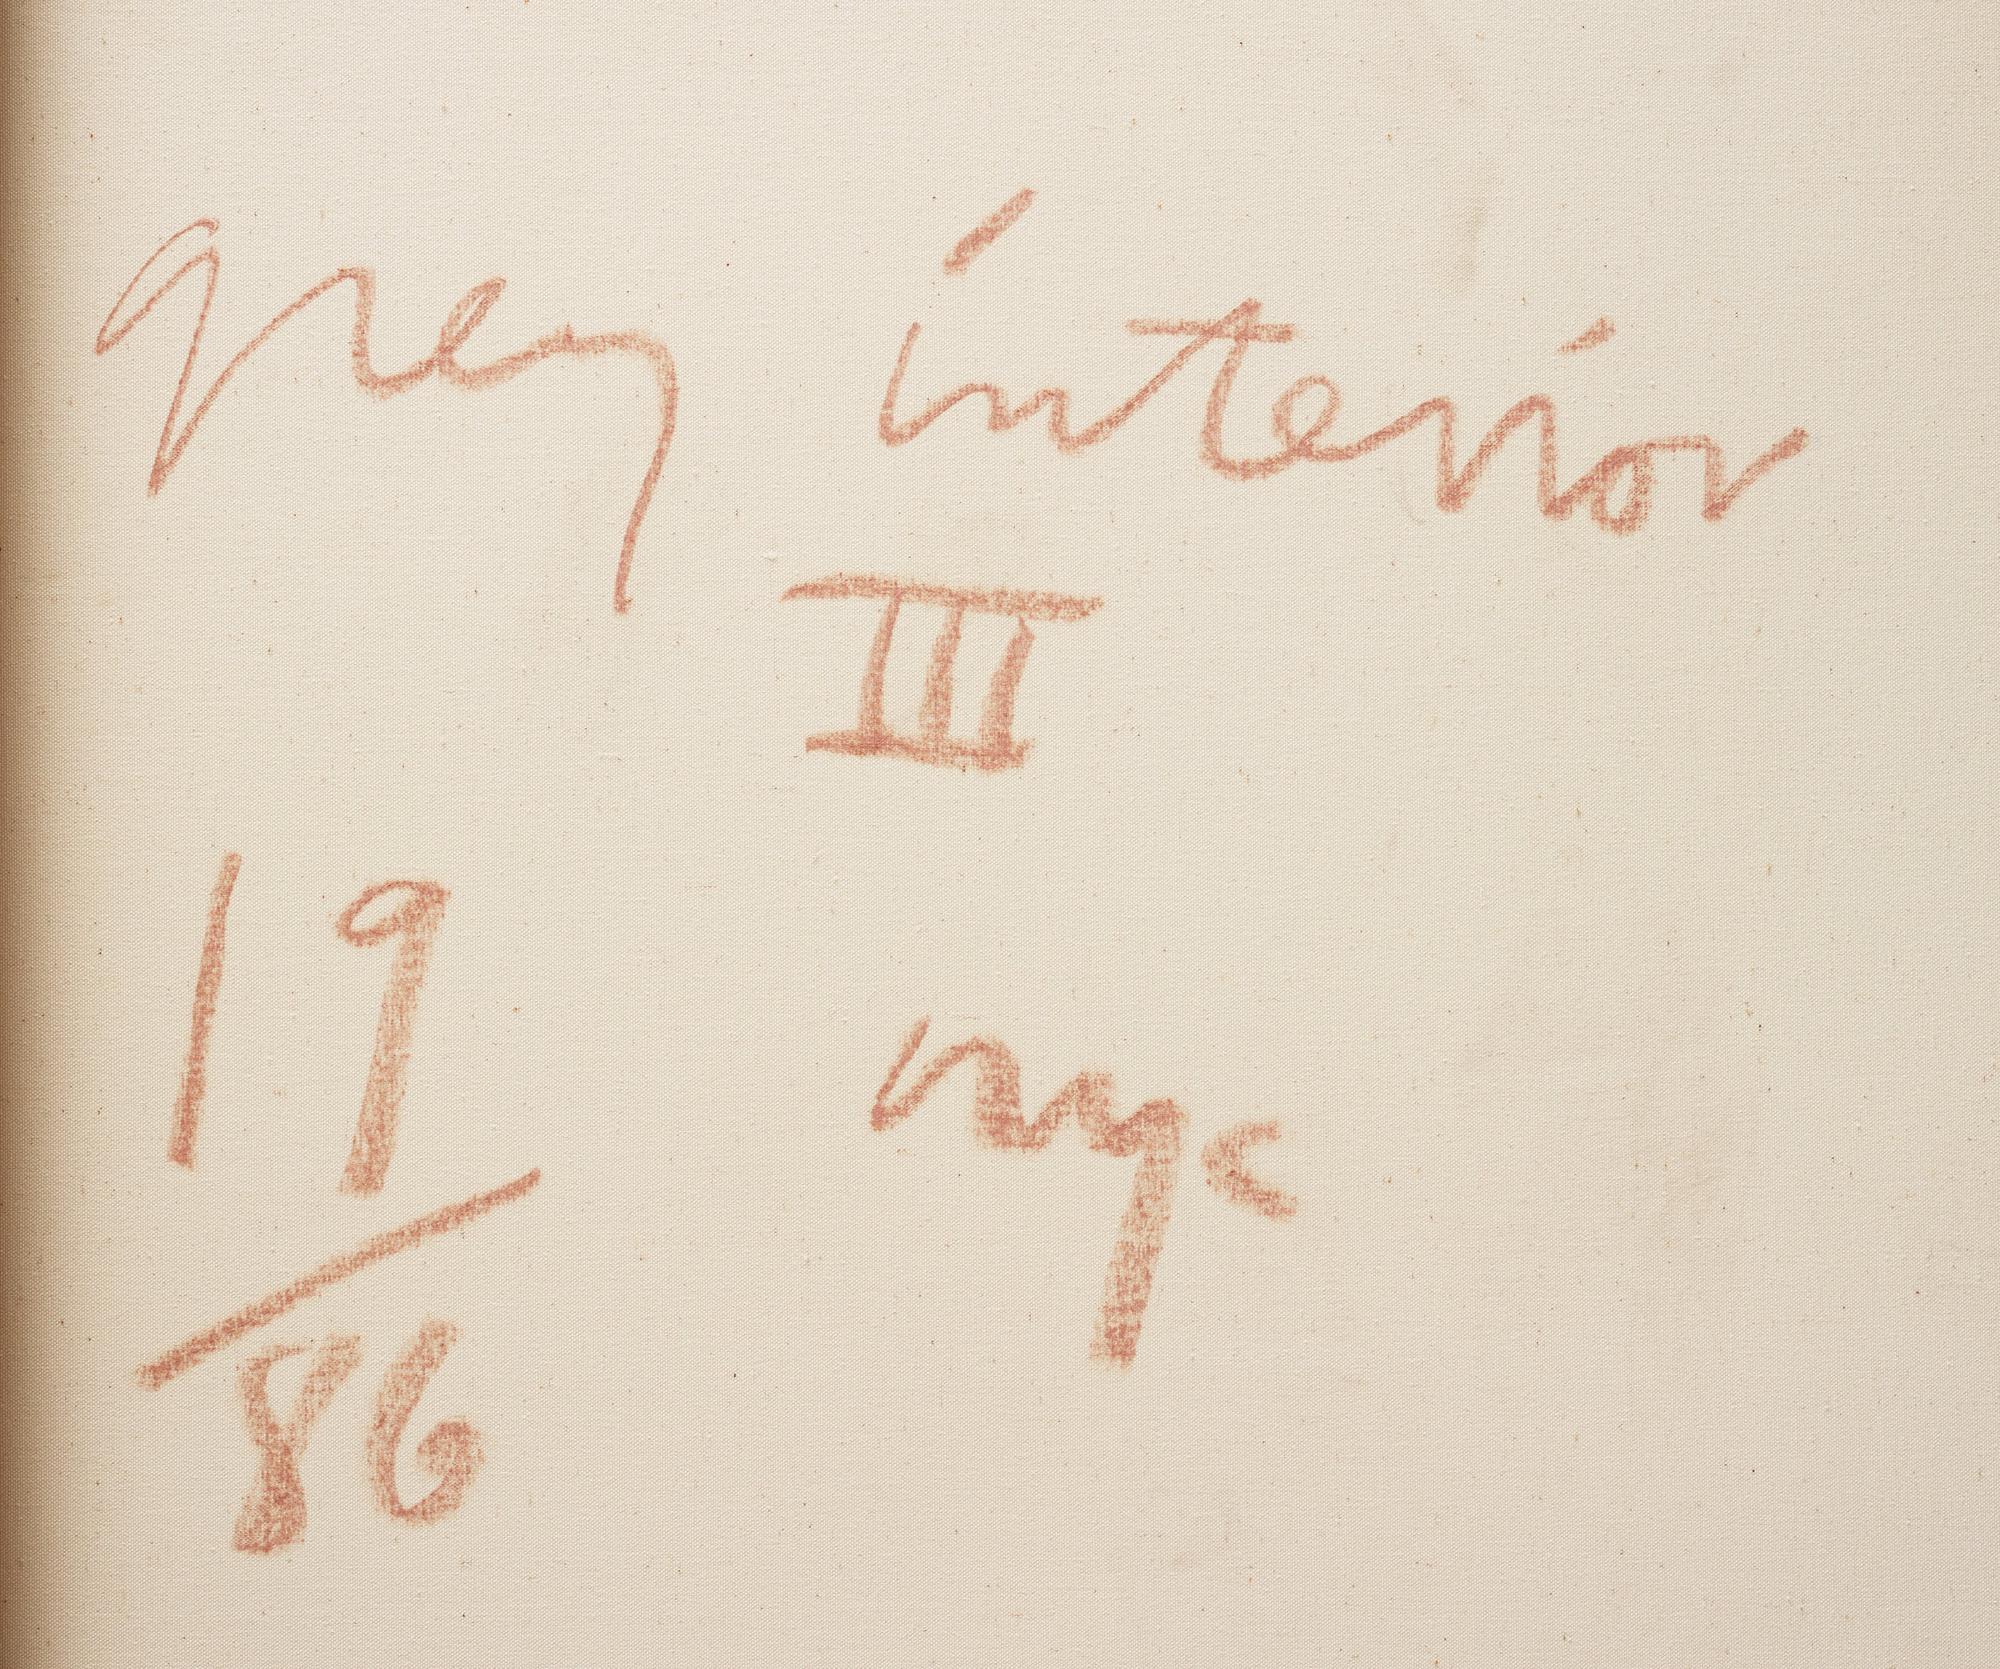 grey interior
III
19
nyc
86